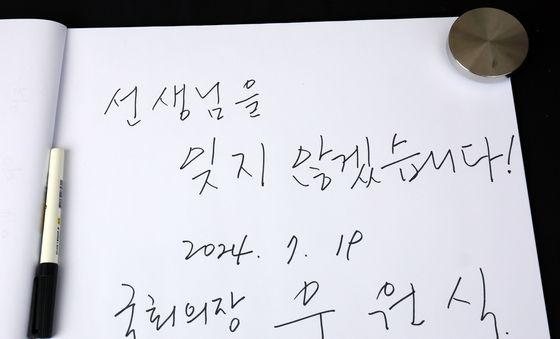 선생님을
잊지 않겠습니다!
2024. 7. 19
국회의장 우 원 식